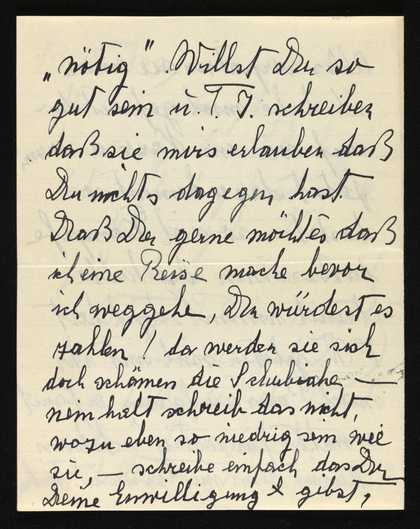 „nötig". Willst Du so
gut sein u. T. J. schreiben
daß sie mirs erlauben daß
Du nichts dagegen hast.
Daß Du gerne möchtes daß
ich eine Reise mache bevor
ich weggehe, Du würdest es
zahlen! da werden sie sich
doch schämen die —
nem halt schreib das nicht,
wozu eben so niedrig sein wie
sie, — schreibe einfach das Du
Deine Einwilligung gibst,